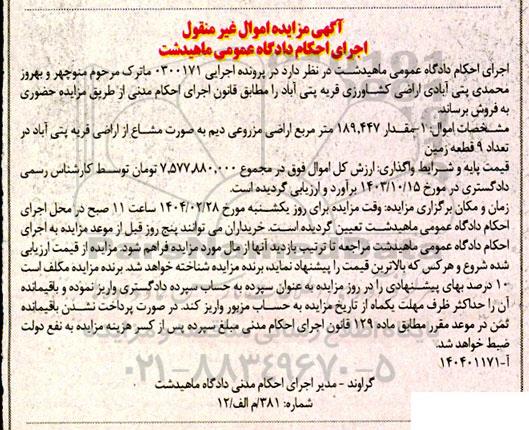 آگهی مزایده اموال غیر منقول
اجرای احکام دادگاه عمومی ماهیدشت
اجرای احکام دادگاه عمومی ماهیدشت در نظر دارد در پرونده اجرایی ۰۳۰۰۱۷۱ ماترک مرحوم منوچهر و بهروز
محمدی پتی آبادی اراضی کشاورزی قریه پتی آباد را مطابق قانون اجرای احکام مدنی از طریق مزایده حضوری
به فروش برساند.
مشخصات اموال: ۱-مقدار ۱۸۹,۴۴۷ متر مربع اراضی مزروعی دیم به صورت مشاع از اراضی قریه پتی آباد در
تعداد ۹ قطعه زمین
قیمت پایه و شرایط واگذاری: ارزش کل اموال فوق در مجموع ۷,۵۷۷,۸۸۰,۰۰۰ تومان توسط کارشناس رسمی
دادگستری در مورخ ۱۴۰۳/۱۰/۱۵ برآورد و ارزیابی گردیده است.
زمان و مکان برگزاری مزایده: وقت مزایده برای روز یکشنبه مورخ ۱۴۰۴/۰۲/۲۸ ساعت ۱۱ صبح در محل اجرای
احکام دادگاه عمومی ماهیدشت تعیین گردیده است. خریداران می توانند پنج روز قبل از موعد مزایده به اجرای
احکام دادگاه عمومی ماهیدشت مراجعه تا ترتیب بازدید آنها از مال مورد مزایده فراهم شود. مزایده از قیمت ارزیابی
شده شروع و هرکس که بالاترین قیمت را پیشنهاد نماید، برنده مزایده شناخته خواهد شد. برنده مزایده مکلف است
۱۰ درصد بهای پیشنهادی را در روز مزایده به عنوان سپرده به حساب سپرده دادگستری واریز نموده و باقیمانده
آن را حداکثر ظرف مهلت یکماه از تاریخ مزایده به حساب مزبور واریز کند. در صورت پرداخت نشدن باقیمانده
ثمن در موعد مقرر مطابق ماده ۱۲۹ قانون اجرای احکام مدنی مبلغ سپرده پس از کسر هزینه مزایده به نفع دولت
ضبط خواهد شد.
آ-۱۴۰۴۰۱۱۷۱
گراوند - مدیر اجرای احکام مدنی دادگاه ماهیدشت
شماره: ۳۸۱/م الف/۱۲
۰۲۱-۸۸۳۴۹۶۷۰-۵